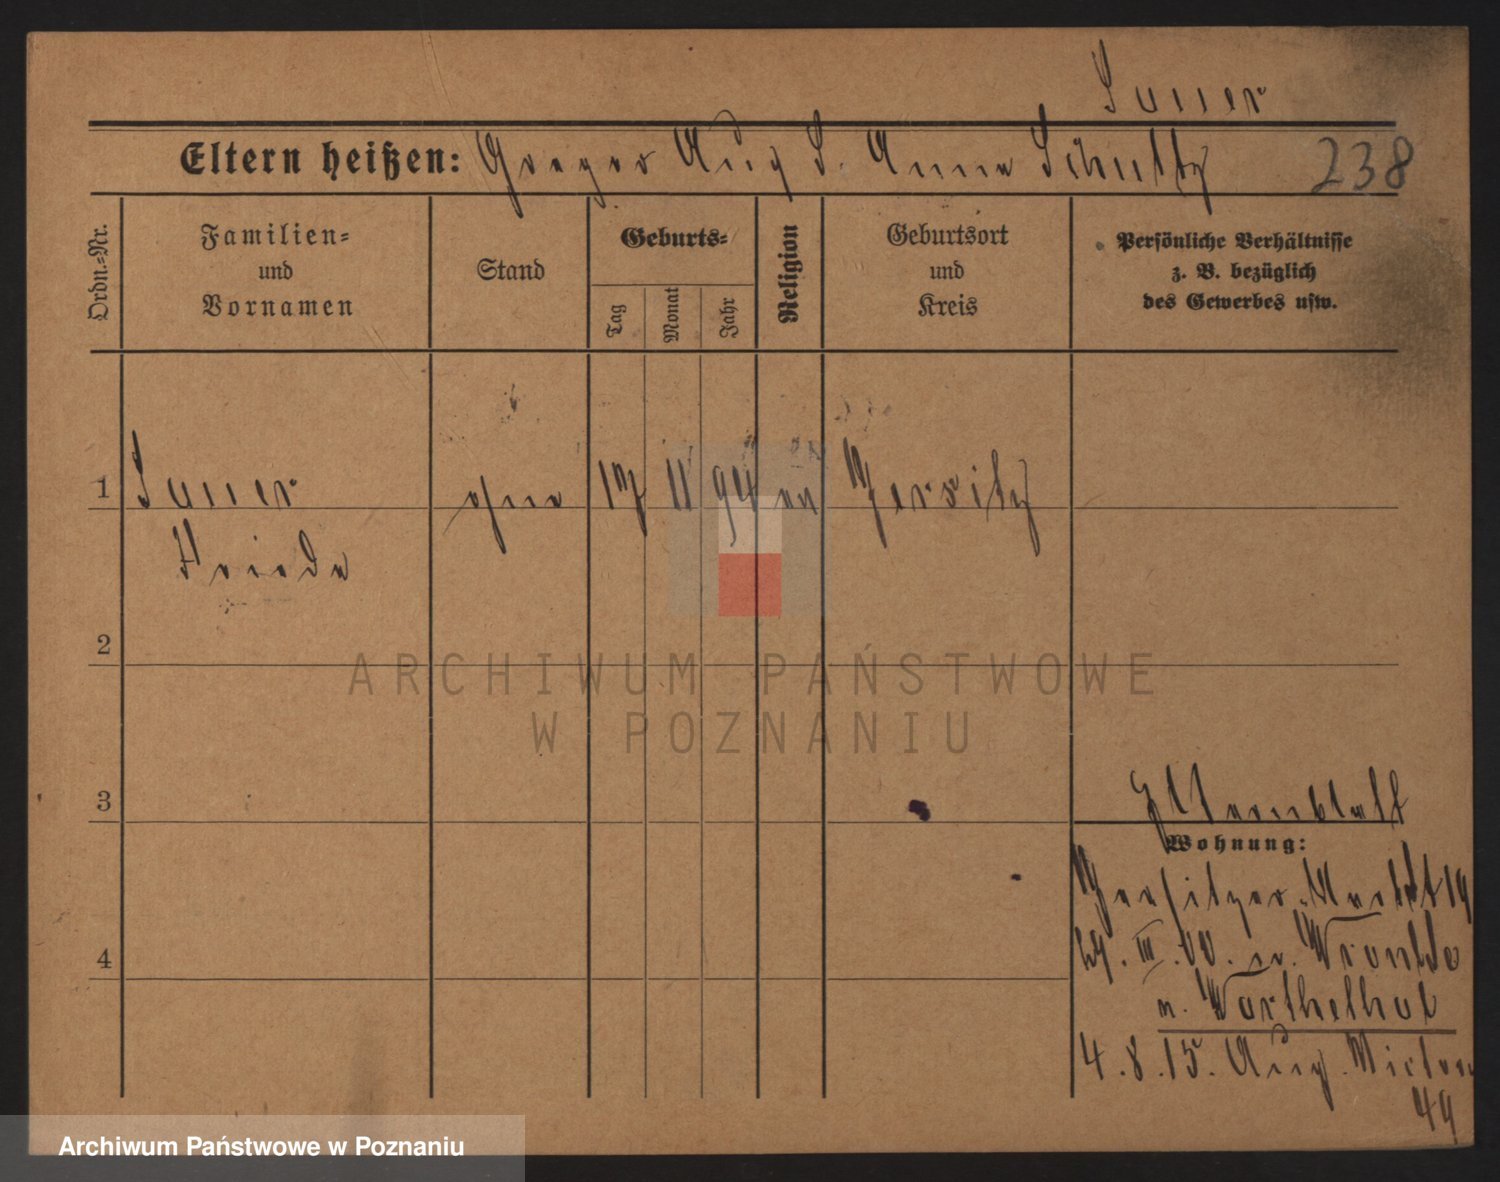 Sauer
Eltern heißen: Gregor Aug S. Anna Schultz 238
Ordn.-Nr.
Familien-
und
Vornamen
Stand
Geburts-
Tag
Monat
Jahr
Religion
Geburtsort
und
Kreis
Persönliche Verhältnisse
z. B. bezüglich
des Gewerbes usw.
1 Sauer ohne 17 11 94 ev Jersitz
Frieda
2
ARCHIWUM PAŃSTWOWE
W POZNANIU
3
Wohnung:
Jersitzer 19
29. III. 00. n. Wronke
n. Warthelhof
4
4.8.15. Aug. Victor
44
Archiwum Państwowe w Poznaniu